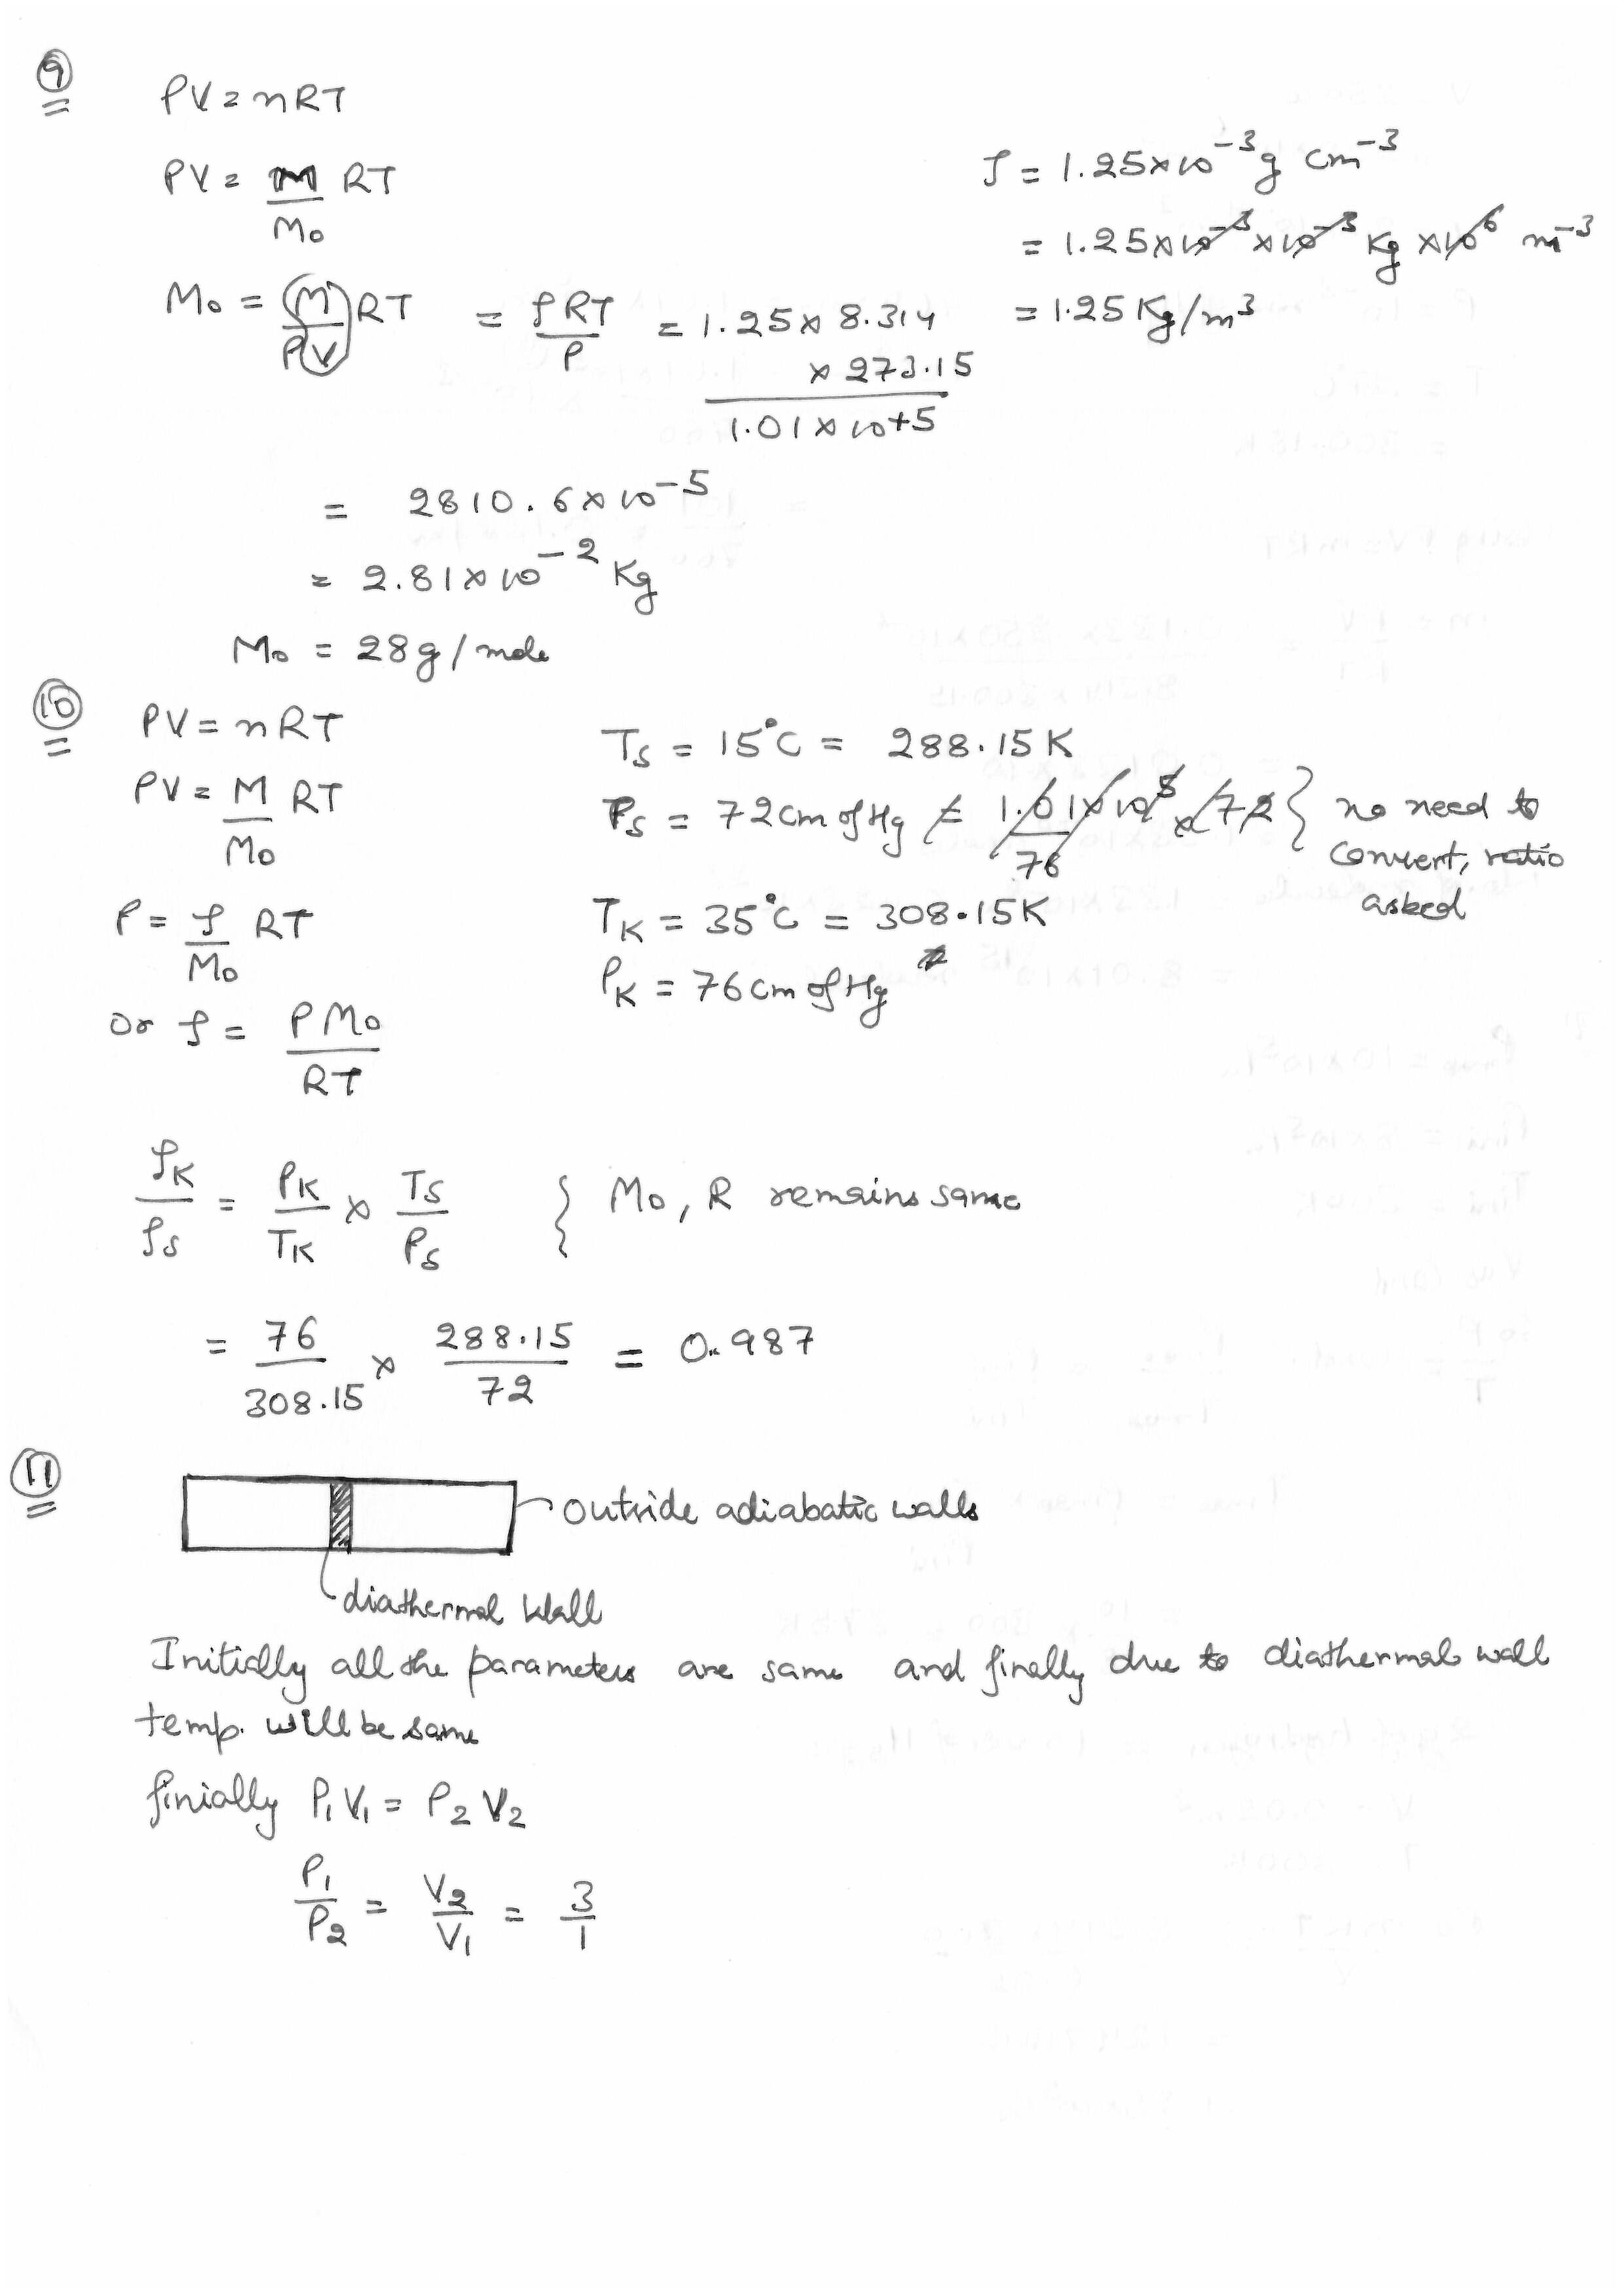 9
PV = nRT
PV = M/M₀ RT
M₀ = (M/PV) RT = ρRT/P = 1.25 × 8.314 × 273.15 / 1.01 × 10+5
ρ = 1.25×10⁻³ g cm⁻³
= 1.25×10⁻³×10⁻³ Kg ×10⁶ m⁻³
= 1.25 Kg/m³
= 2810.6×10⁻⁵
= 2.81×10⁻² Kg
M₀ = 28g/mole
10
PV = nRT
PV = M/M₀ RT
P = ρ/M₀ RT
or ρ = PM₀/RT
T_S = 15°C = 288.15 K
P_S = 72 cm of Hg = 1.01×10⁵/76 × 72 } no need to
convert, ratio
asked
T_K = 35°C = 308.15K
P_K = 76 cm of Hg
ρ_K/ρ_S = P_K/T_K × T_S/P_S { M₀, R remains same
= 76/308.15 × 288.15/72 = 0.987
11
outside adiabatic walls
diathermal Wall
Initially all the parameters are same and finally due to diathermal wall
temp. will be same
finially P₁V₁ = P₂V₂
P₁/P₂ = V₂/V₁ = 3/1